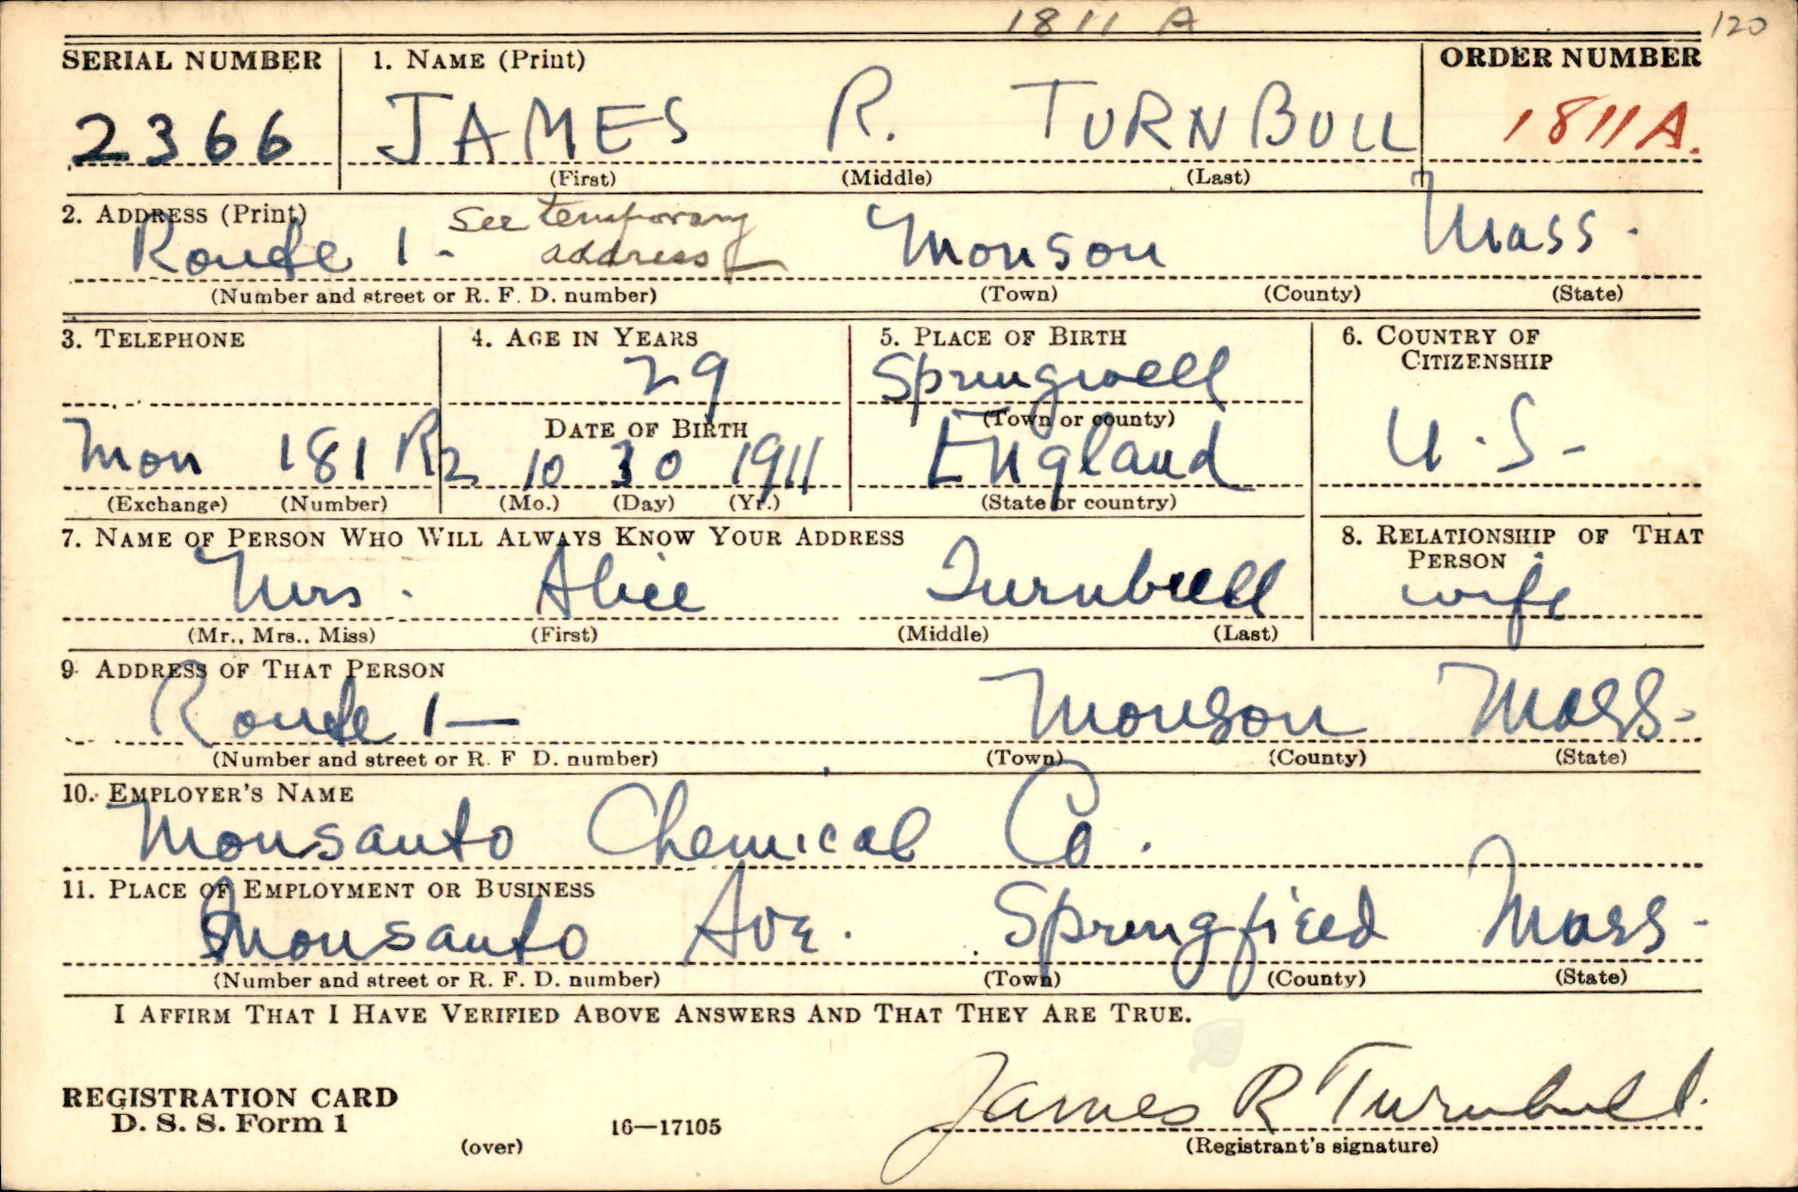 1811 A
120
SERIAL NUMBER 1. NAME (Print) ORDER NUMBER
2366 JAMES R. TURNBULL 1811A.
(First) (Middle) (Last)
2. ADDRESS (Print)
Route 1 - See temporary address Monson Mass.
(Number and street or R. F. D. number) (Town) (County) (State)
3. TELEPHONE 4. AGE IN YEARS 5. PLACE OF BIRTH 6. COUNTRY OF CITIZENSHIP
29 Springwell
DATE OF BIRTH (Town or county)
Mon 181 R2 10 30 1911 England U.S-
(Exchange) (Number) (Mo.) (Day) (Yr.) (State or country)
7. NAME OF PERSON WHO WILL ALWAYS KNOW YOUR ADDRESS 8. RELATIONSHIP OF THAT PERSON
Mrs. Alice Turnbull wife
(Mr., Mrs., Miss) (First) (Middle) (Last)
9. ADDRESS OF THAT PERSON
Route 1— Monson Mass-
(Number and street or R. F. D. number) (Town) (County) (State)
10. EMPLOYER'S NAME
Monsanto Chemical Co.
11. PLACE OF EMPLOYMENT OR BUSINESS
Monsanto Ave. Springfield Mass-
(Number and street or R. F. D. number) (Town) (County) (State)
I AFFIRM THAT I HAVE VERIFIED ABOVE ANSWERS AND THAT THEY ARE TRUE.
James R Turnbull.
REGISTRATION CARD
D. S. S. Form 1 16—17105
(over) (Registrant's signature)